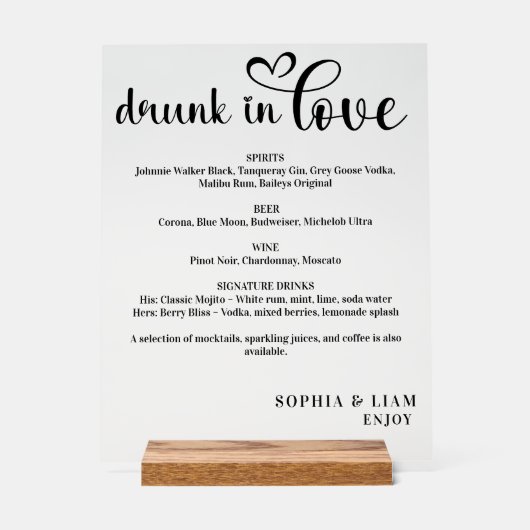 drunk in love
SPIRITS
Johnnie Walker Black, Tanqueray Gin, Grey Goose Vodka,
Malibu Rum, Baileys Original
BEER
Corona, Blue Moon, Budweiser, Michelob Ultra
WINE
Pinot Noir, Chardonnay, Moscato
SIGNATURE DRINKS
His: Classic Mojito – White rum, mint, lime, soda water
Hers: Berry Bliss – Vodka, mixed berries, lemonade splash
A selection of mocktails, sparkling juices, and coffee is also
available.
SOPHIA & LIAM
ENJOY